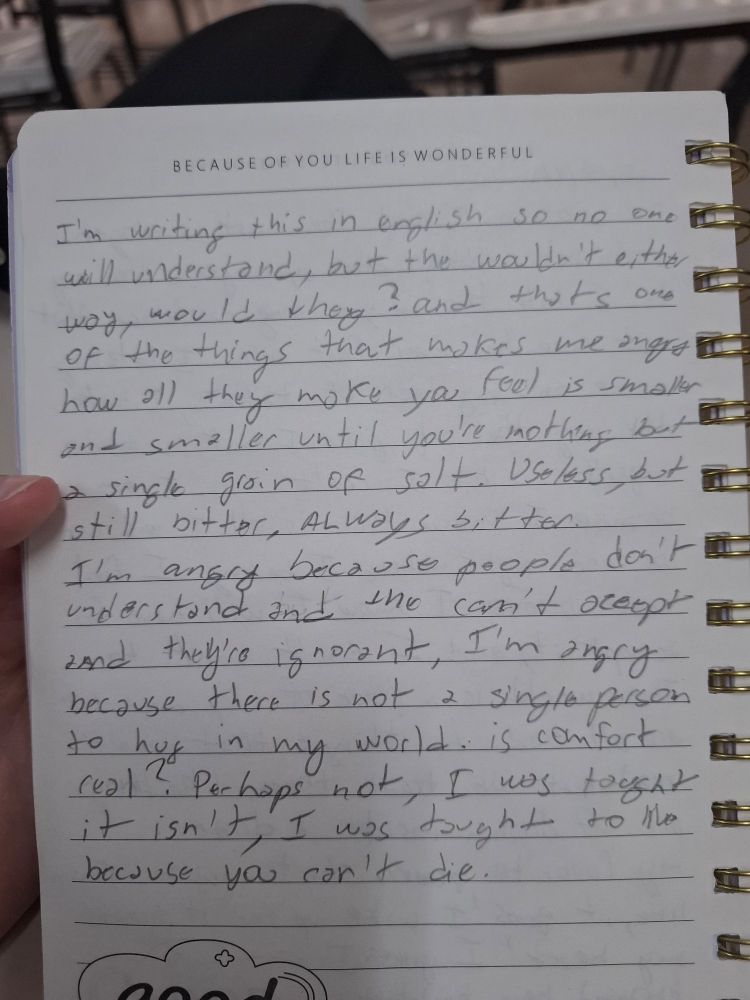 BECAUSE OF YOU LIFE IS WONDERFUL
I'm writing this in english so no one
will understand, but the wouldn't either
way, would they? and thats one
of the things that makes me angry
how all they make you feel is smaller
and smaller until you're nothing but
a single grain of salt. Useless, but
still bitter, ALWAYS bitter.
I'm angry because people don't
understand and the can't accept
and they're ignorant, I'm angry
because there is not a single person
to hug in my world. is comfort
real? Perhaps not, I was tought
it isn't, I was tought to
because you can't die.
good